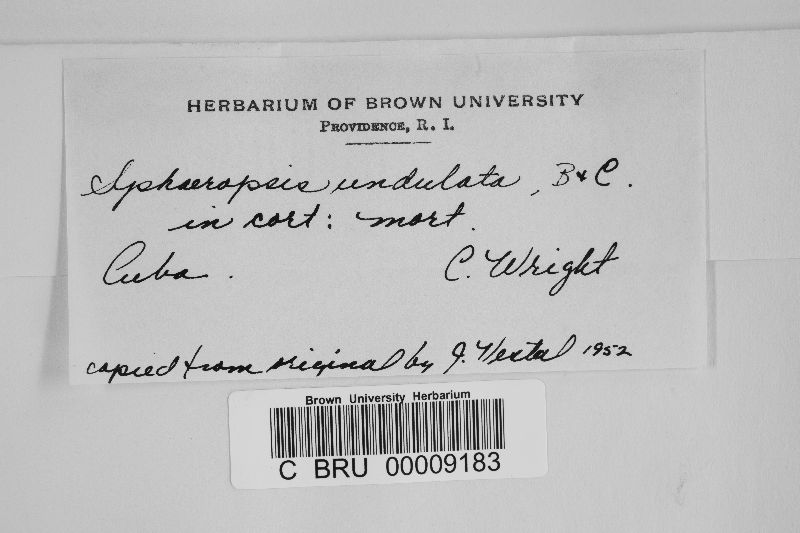 HERBARIUM OF BROWN UNIVERSITY
PROVIDENCE, R. I.
Sphaeropsis undulata, B & C.
in cort: mort.
Cuba. C. Wright
copied from original by J. Vestal 1952
Brown University Herbarium
C BRU 00009183